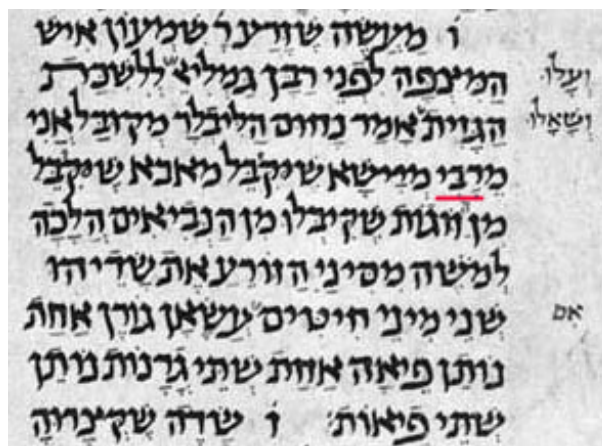 ו מעשה שזרע ר שמעון איש
המיצפה לפני רבן גמליא ללשכת ועלו
הגזית אמר נחום הליבלר מקובל אני ושאלו
מרבי מיישא שקיבל מאבא שקיבל
מן הזוגות שקיבלו מן הנביאים הלכה
למשה מסיני הזורע את שדיהו
שני מיני חיטים עשאן גורן אחת אם
נותן פיאה אחת שתי גרנות נותן
שתי פיאות ו שדה שקצרוה